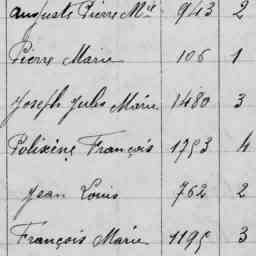 Auguste Pierre Mie 943 2
Pierre Marie 106 1
Joseph Jules Marie 1480 3
Polixène François 1753 4
Jean Louis 762 2
François Marie 1195 3